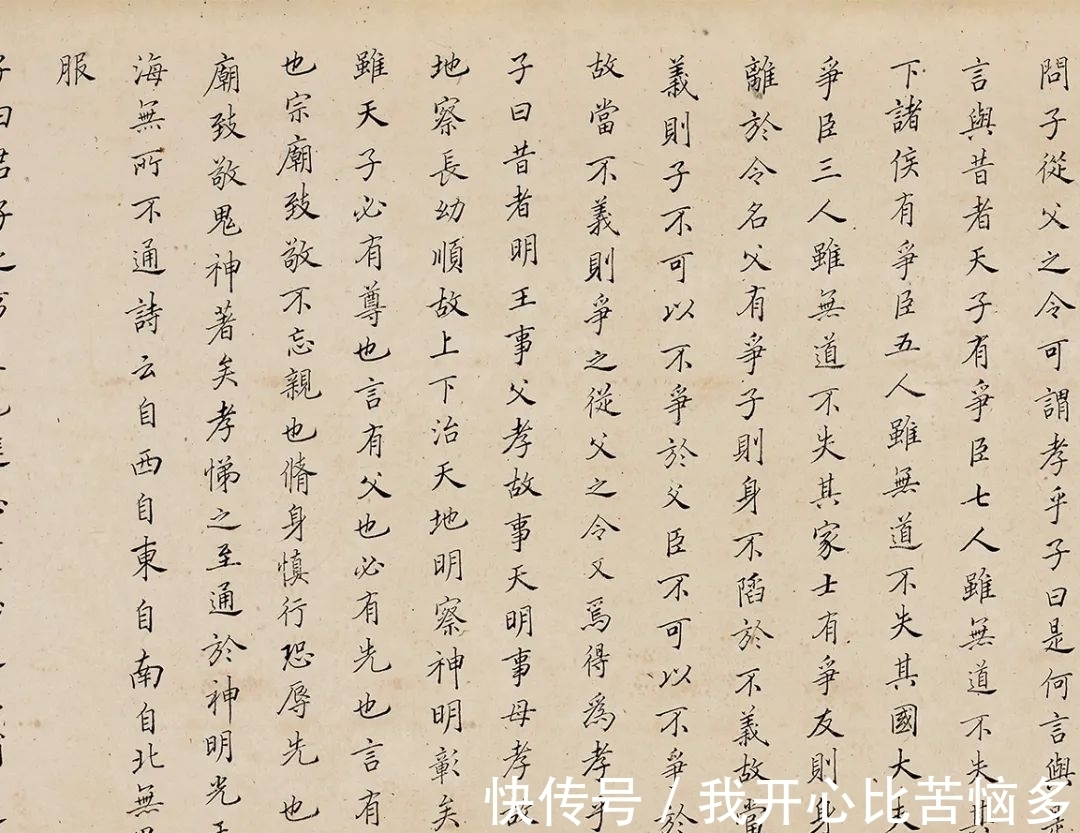 問子從父之令可謂孝乎子曰是何言與是
言與昔者天子有爭臣七人雖無道不失其
下諸侯有爭臣五人雖無道不失其國大夫
爭臣三人雖無道不失其家士有爭友則身
離於令名父有爭子則身不陷於不義故當
義則子不可以不爭於父臣不可以不爭於
故當不義則爭之從父之令又焉得為孝乎
子曰昔者明王事父孝故事天明事母孝故
地察長幼順故上下治天地明察神明彰矣
雖天子必有尊也言有父也必有先也言有
也宗廟致敬不忘親也脩身慎行恐辱先也
廟致敬鬼神著矣孝悌之至通於神明光
海無所不通詩云自西自東自南自北無
服
子曰君子之事
快传号 / 我开心比苦恼多